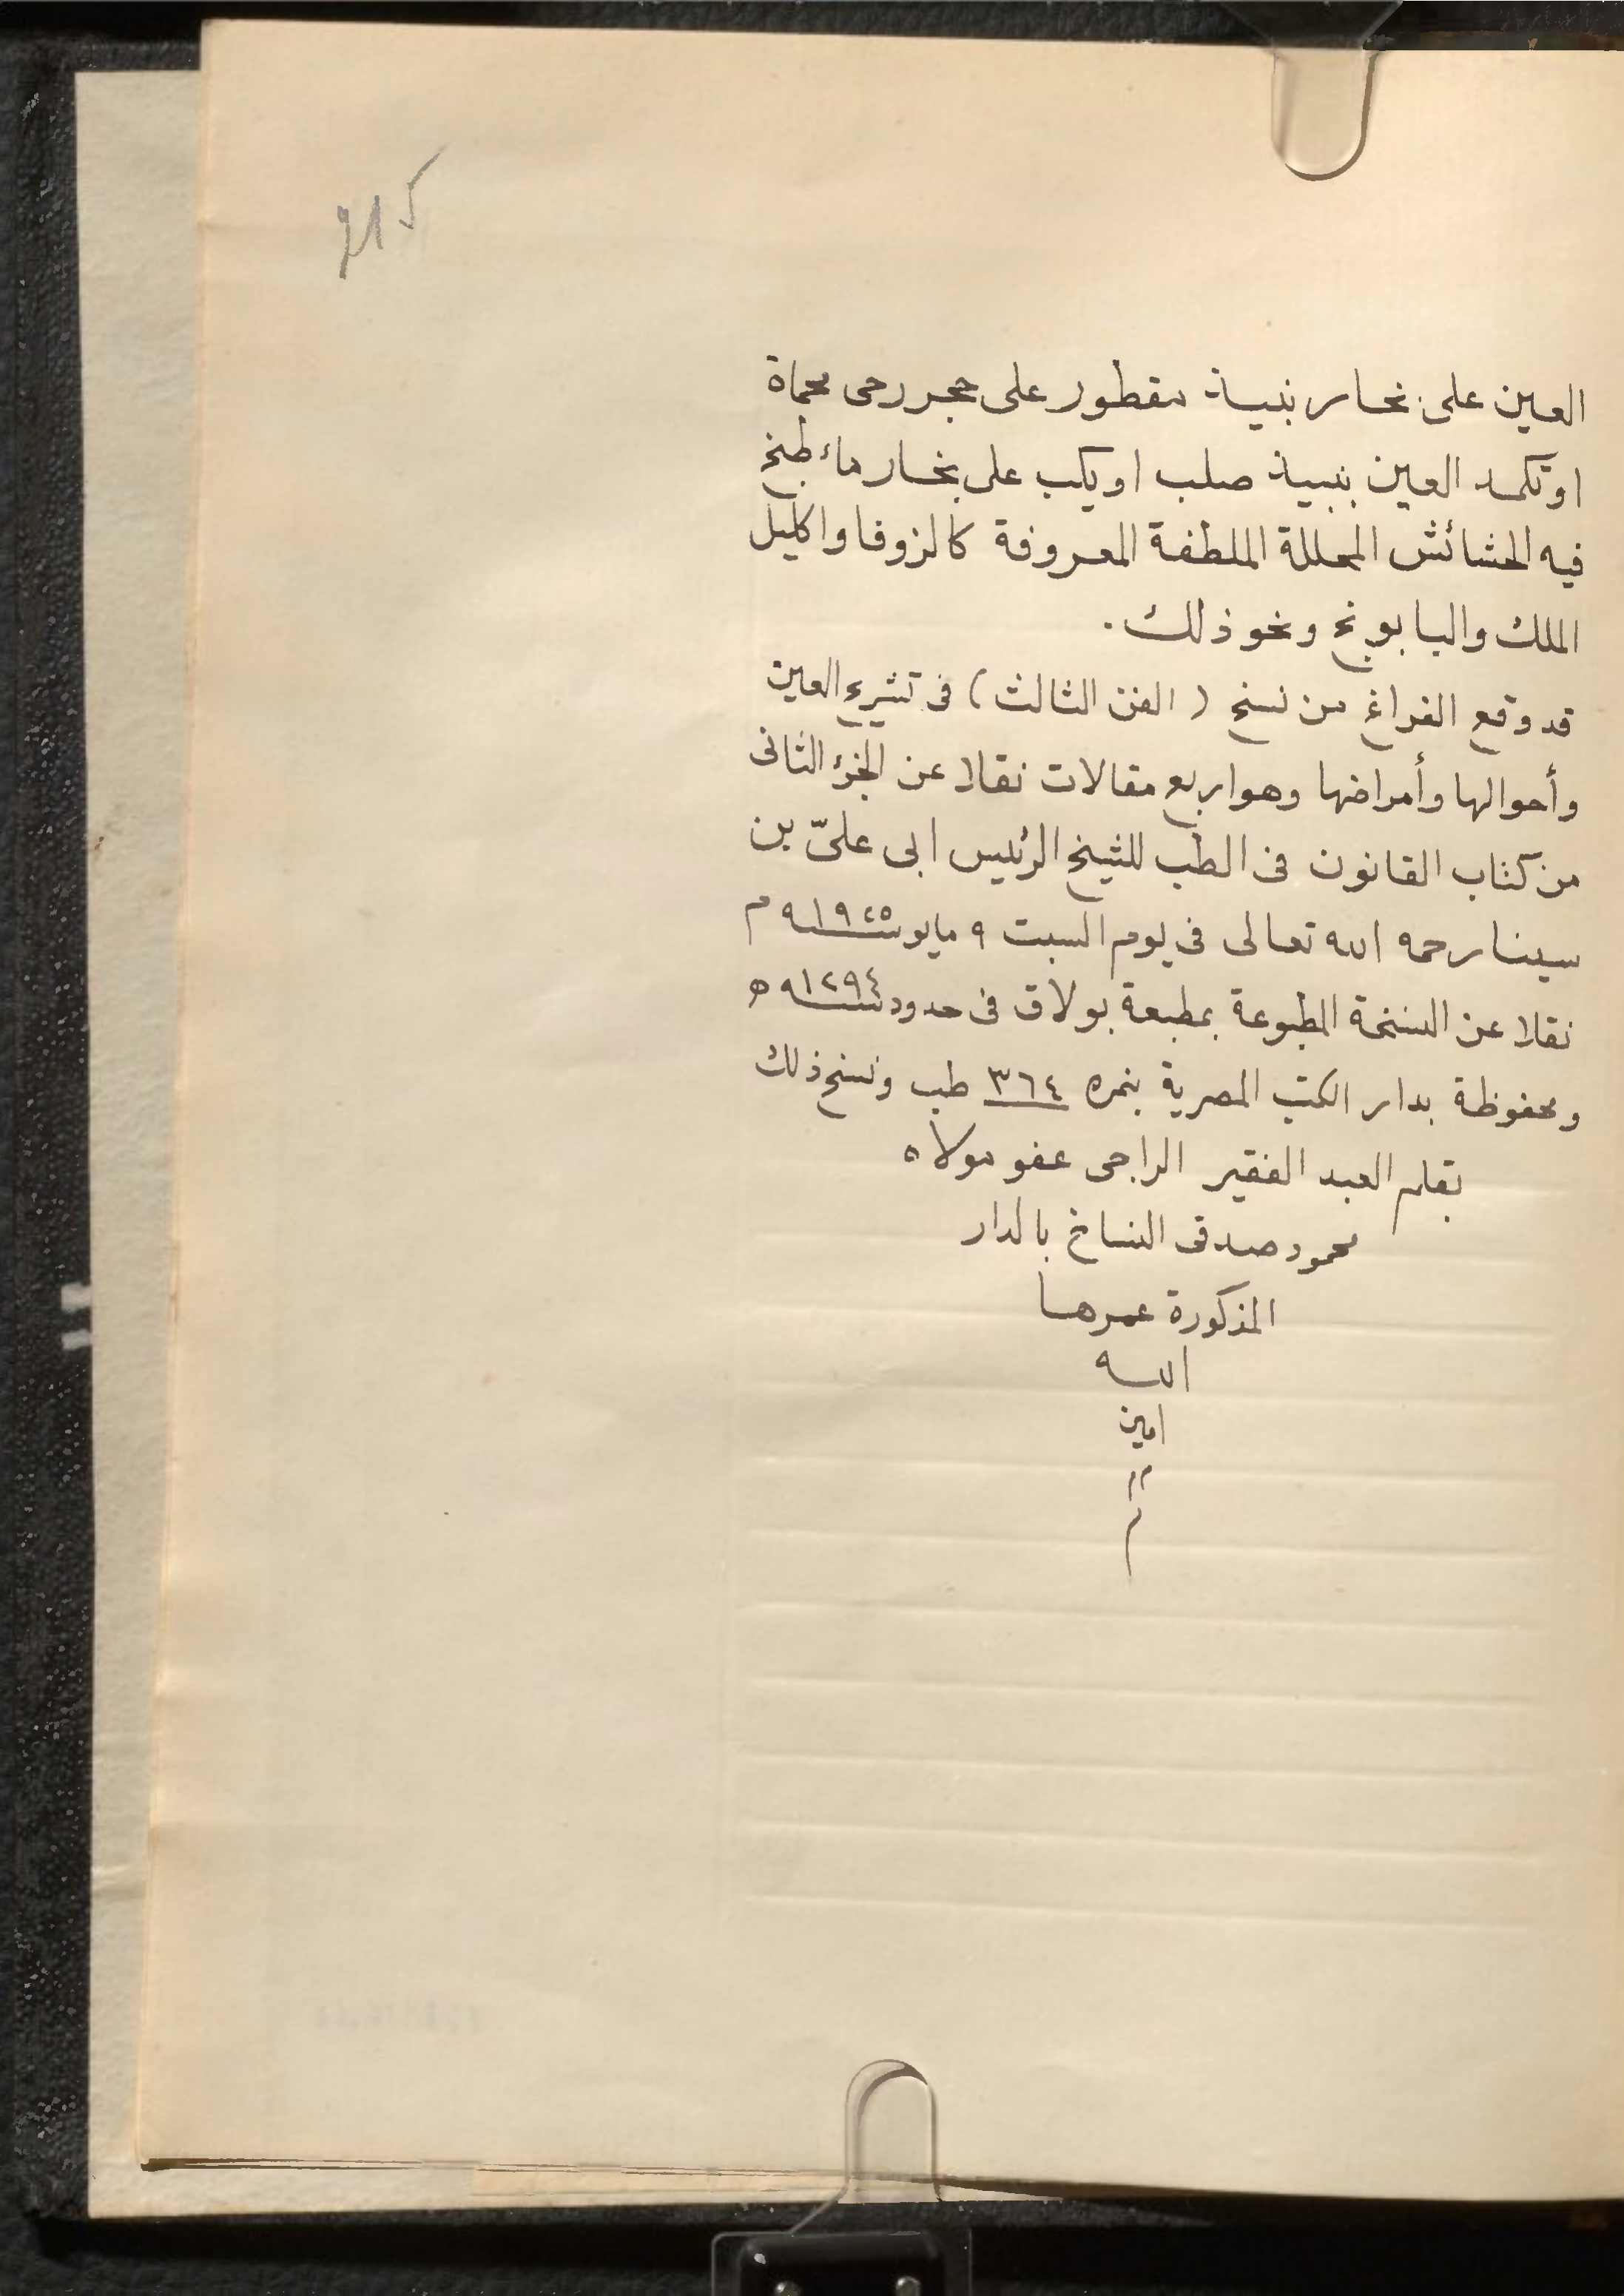 215
العين على بخار نبيذ مقطور على حجر رحى محماة
او تكمد العين بنبيذ صلب او يكب على بخار ماء طبخ
فيه الحشائش المحللة الملطفة المعروفة كالزوفا واكليل
الملك والبابونج ونحو ذلك .
قد وقع الفراغ من نسخ ( الفن الثالث ) فى تشريح العين
وأحوالها وأمراضها وهو اربع مقالات نقلا عن الجزء الثانى
من كتاب القانون فى الطب للشيخ الرئيس ابى علىّ بن
سينا رحمه الله تعالى فى يوم السبت ٩ مايو سنة ١٩٢٥ م
نقلا عن النسخة المطبوعة بمطبعة بولاق فى حدود سنة ١٢٩٤ ه
ومحفوظة بدار الكتب المصرية بنمره ٣٦٤ طب ونسخ ذلك
بقلم العبد الفقير الراجى عفو مولاه
محمود صدقى النساخ بالدار
المذكورة عمرها
الله
امين
م